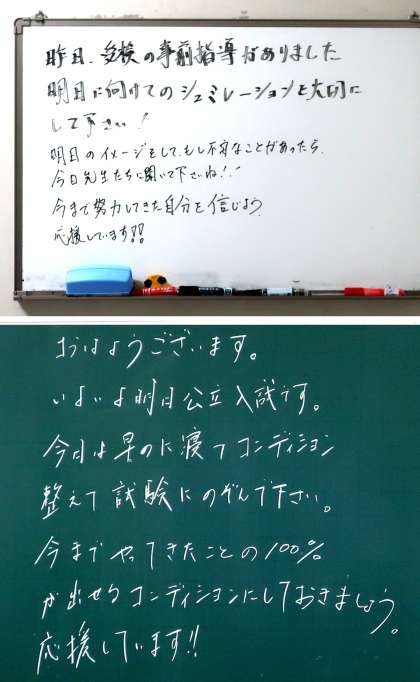 昨日、受検の事前指導がありました
明日に向けてのシュミレーションを大切に
して下さい!
明日のイメージをして、もし不安なことがあったら、
今日先生たちに聞いて下さいね!!
今まで努力してきた自分を信じよう
応援しています!!
おはようございます。
いよいよ明日公立入試です。
今日は早めに寝てコンディション
整えて試験にのぞんで下さい。
今までやってきたことの100%
が出せるコンディションにしておきましょう。
応援しています!!